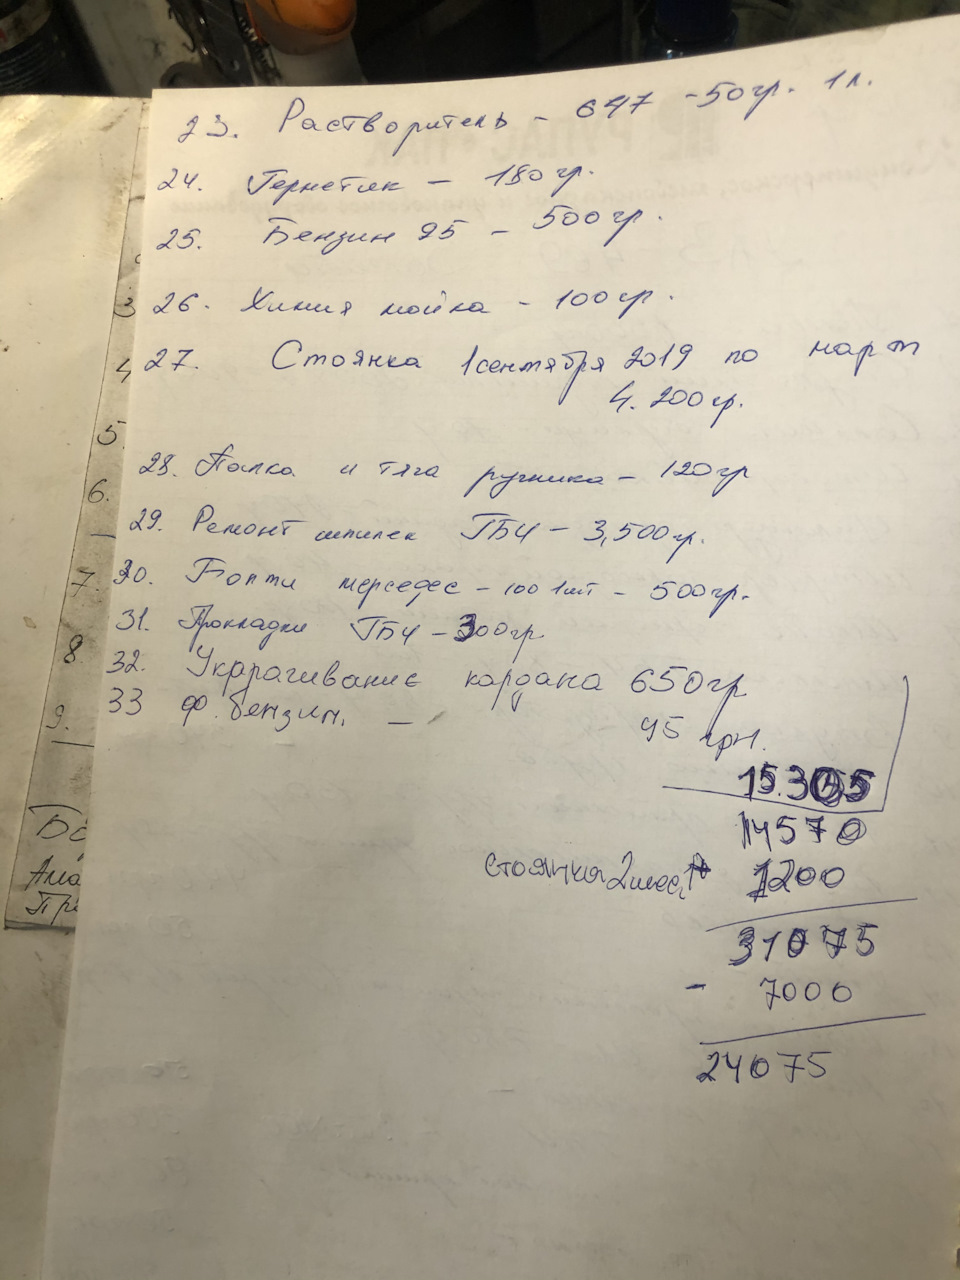 23. Растворитель - 647 - 50гр. 1л.
24. Герметик - 180гр.
25. Бензин 95 - 500гр.
26. Химия мойка - 100гр.
27. Стоянка 1сентября 2019 по март
4.200гр.
28. Палка и тяга ручника - 120гр
29. Ремонт шпилек ГБЦ - 3,500гр.
30. Болти мерседес - 100 1шт - 500гр.
31. Прокладки ГБЦ - 300гр.
32. Украрачивание кардана 650гр
33 ф. бензин. - 45 грн.
15.305
14570
Стоянка 2мес. 1200
31075
- 7000
24075
3
4
5.
6.
7.
8
9.